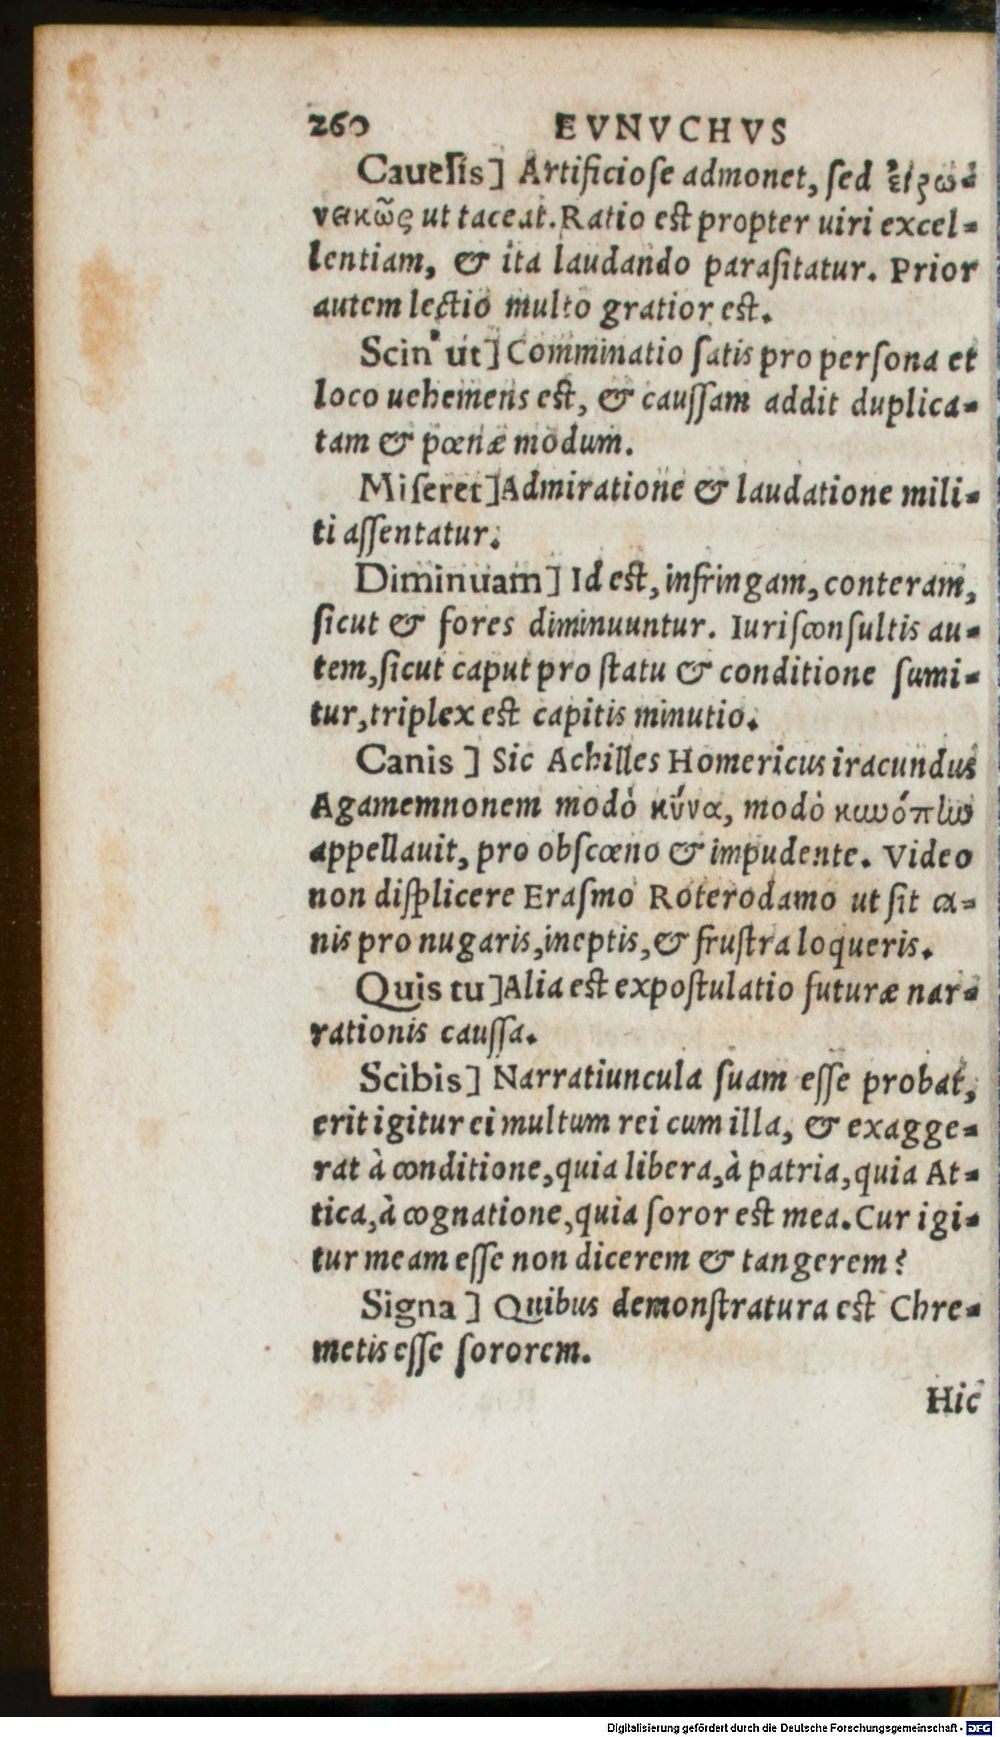 260 EVNVCHVS
Cauesis] Artificiose admonet, sed
ut taceat. Ratio est propter uiri excel-
lentiam, & ita laudando parasitatur. Prior
autem lectio multo gratior est.
Scin' ut] Comminatio satis pro persona et
loco uehemens est, & caussam addit duplica-
tam & pœnæ modum.
Miseret] Admiratione & laudatione mili-
ti assentatur.
Diminuam] Id est, infringam, conteram,
sicut & fores diminuuntur. Iurisconsultis au-
tem, sicut caput pro statu & conditione sumi-
tur, triplex est capitis minutio.
Canis] Sic Achilles Homericus iracundus
Agamemnonem modò κύνα, modò
appellauit, pro obscœno & impudente. Video
non displicere Erasmo Roterodamo ut sit ca-
nis pro nugaris, ineptis, & frustra loqueris.
Quis tu] Alia est expostulatio futuræ nar-
rationis caussa.
Scibis] Narratiuncula suam esse probat,
erit igitur ei multum rei cum illa, & exagge-
rat à conditione, quia libera, à patria, quia At-
tica, à cognatione, quia soror est mea. Cur igi-
tur meam esse non dicerem & tangerem?
Signa] Quibus demonstratura est Chre-
metis esse sororem.
Hic
Digitalisierung gefördert durch die Deutsche Forschungsgemeinschaft - DFG